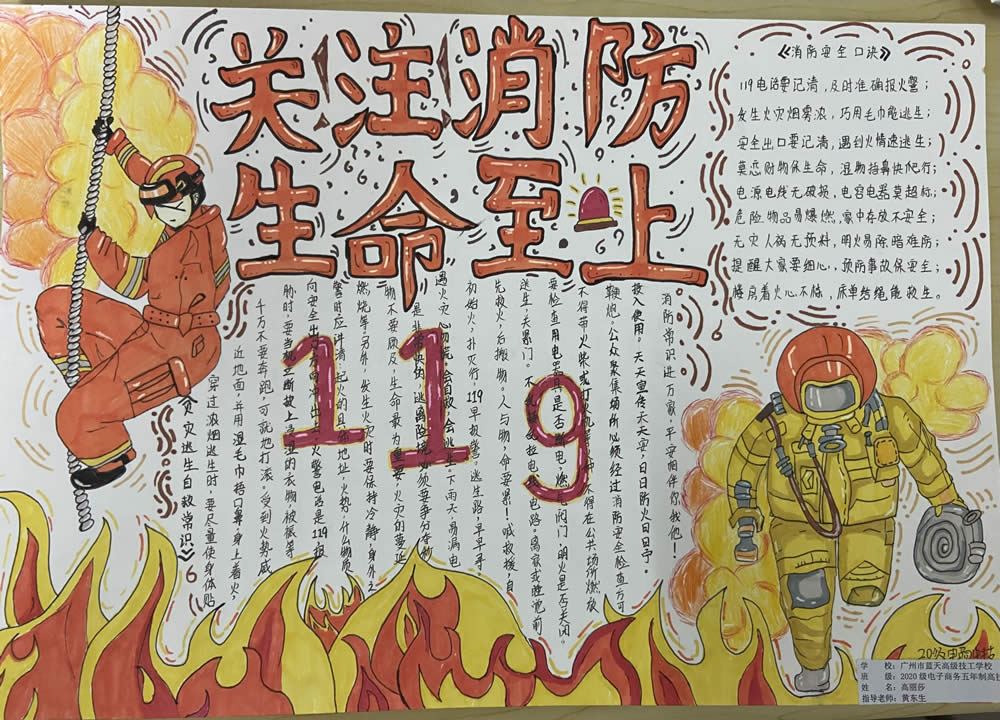 关注消防
生命至上
《消防安全口诀》
119电话要记清，及时准确报火警；
发生火灾烟雾浓，巧用毛巾能逃生；
安全出口要记清，遇到火情速逃生；
莫恋财物保生命，湿物捂鼻快爬行；
电源电线无破损，电容电器莫超标；
危险物品易爆燃，家中存放不安全；
无灾人祸无预料，明火易除暗难防；
提醒大家要细心，预防事故保安全；
楼房着火心不惊，床单结绳能救生。
119
消防常识进万家，平安相伴你我他！
投入使用。天天宣传天天安，日日防火日日宁。
鞭炮。公众聚集场所必须经过消防安全检查方可
不得带火柴或打火机等 不得在公共场所燃放
要检查用电器具是否断电，燃 阀门，明火是否关闭。
逃生，关累门。不 拉电 电路。离家或睡觉前
先救火，后搬物，人与物，命要紧！喊救援，自
初始火，扑灭行，119早报警，逃生路，早早寻。
遇火灾心勿慌，会自救，会逃生，下雨天，易漏电
是 快的，逃离险境，必须要争分夺秒
物不要顾及，生命最为重要，火灾的蔓延
燃烧等。另外，发生火灾时要保持冷静，身外之
警时应讲清：起火的具体地址，火势，什么物质
向安全出口方向冲出去。火警电话是119报
胁时，要当机立断披上浸湿的衣物，被褥等
千万不要奔跑，可就地打滚，受到火势威
近地面，并用湿毛巾捂口鼻，身上着火，
穿过浓烟逃生时，要尽量使身体贴
《火灾逃生自救常识》
学 校：广州市蓝天高级技工学校
班 级：2020级电子商务五年制高技
姓 名：高丽莎
指导老师：黄东生